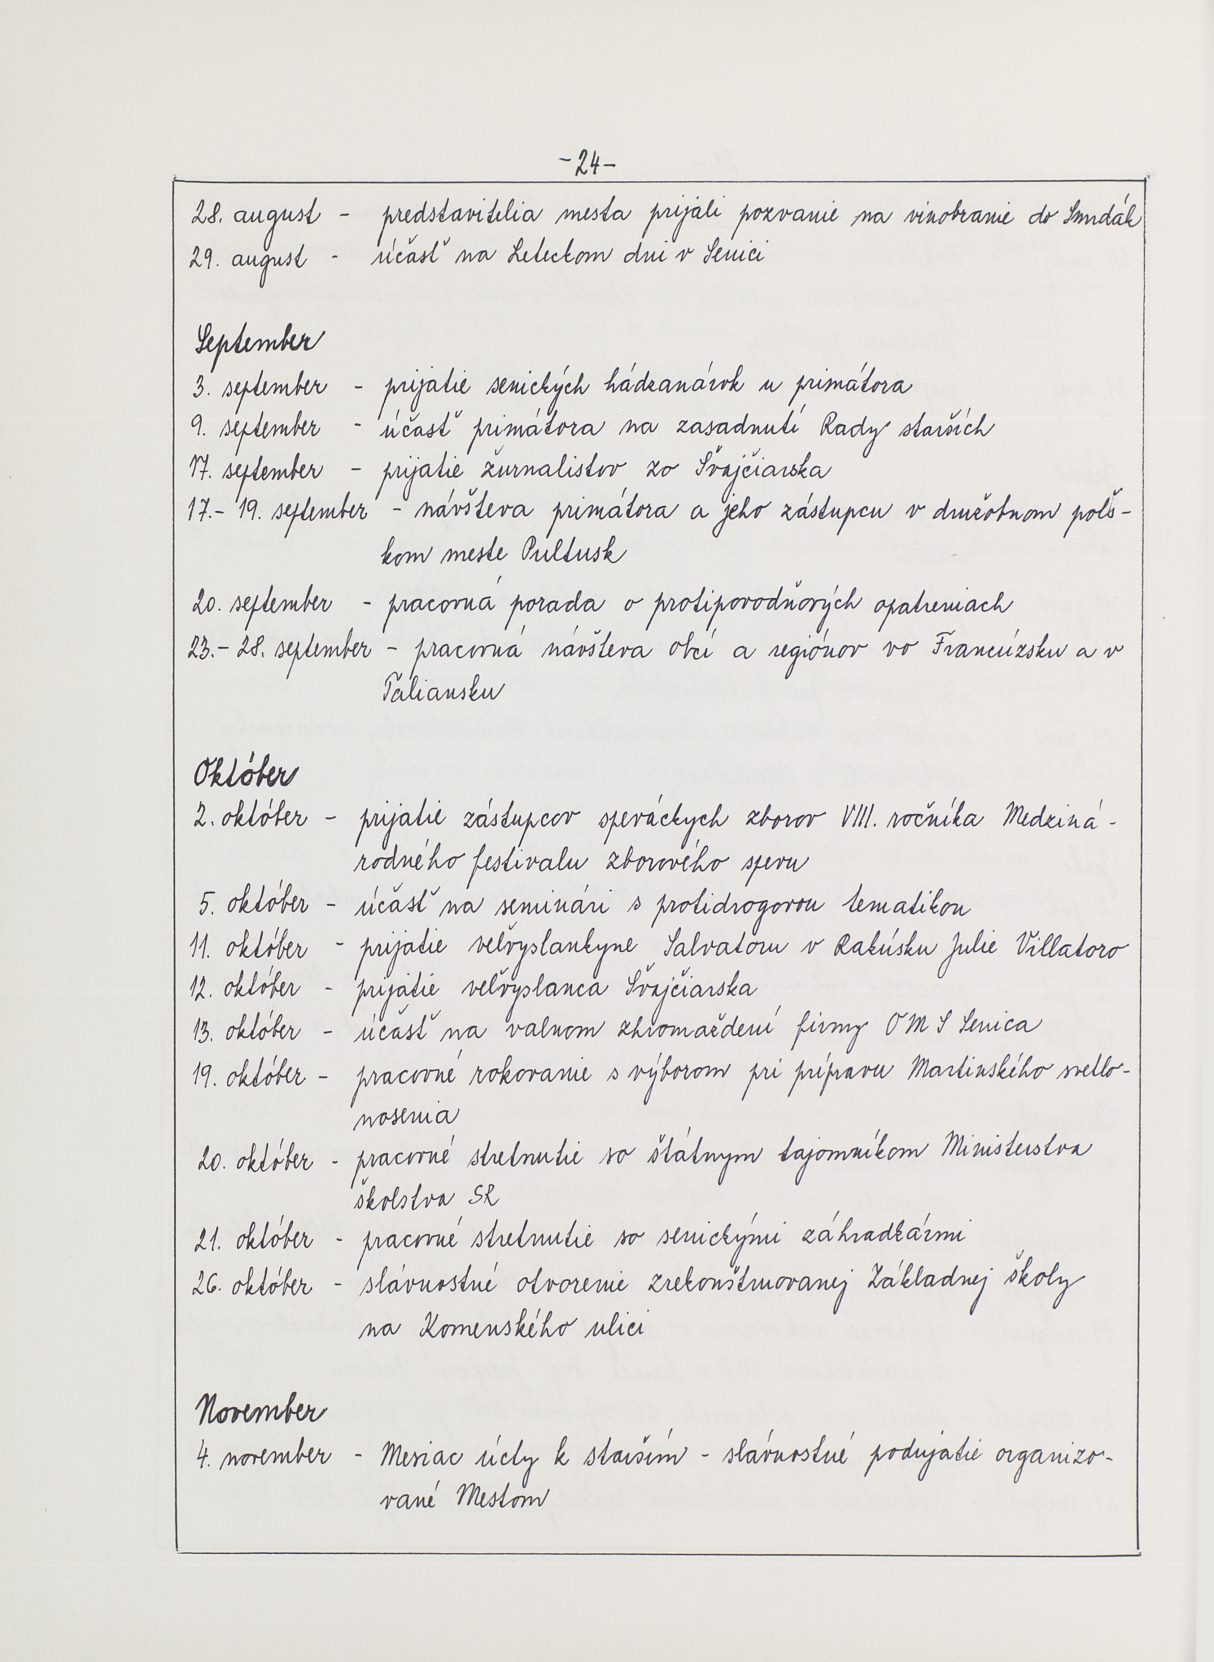 -24-
28. august - predstavitelia mesta prijali pozvanie na vinobranie do Smrdák
29. august - účasť na Leteckom dni v Senici
September
3. september - prijatie senických hádzanárok u primátora
9. september - účasť primátora na zasadnutí Rady starších
17. september - prijatie žurnalistov zo Švajčiarska
17.- 19. september - návšteva primátora a jeho zástupcu v družobnom poľs-
kom meste Pultusk
20. september - pracovná porada o protipovodňových opatreniach
23.- 28. september - pracovná návšteva obcí a regiónov vo Francúzsku a v
Taliansku
Október
2. október - prijatie zástupcov speváckych zborov VIII. ročníka Medziná-
rodného festivalu zborového spevu
5. október - účasť na seminári s protidrogovou tematikou
11. október - prijatie veľvyslankyne Salvatoru v Rakúsku Julie Villatoro
12. október - prijatie veľvyslanca Švajčiarska
13. október - účasť na valnom zhromaždení firmy OMS Senica
19. október - pracovné rokovanie s výborom pri prípravu Martinského svetlo-
nosenia
20. október - pracovné stretnutie so štátnym tajomníkom Ministerstva
školstva SR
21. október - pracovné stretnutie so senickými záhradkármi
26. október - slávnostné otvorenie zrekonštruovanej Základnej školy
na Komenského ulici
November
4. november - Mesiac úcty k starším - slávnostné podujatie organizo-
vané Mestom